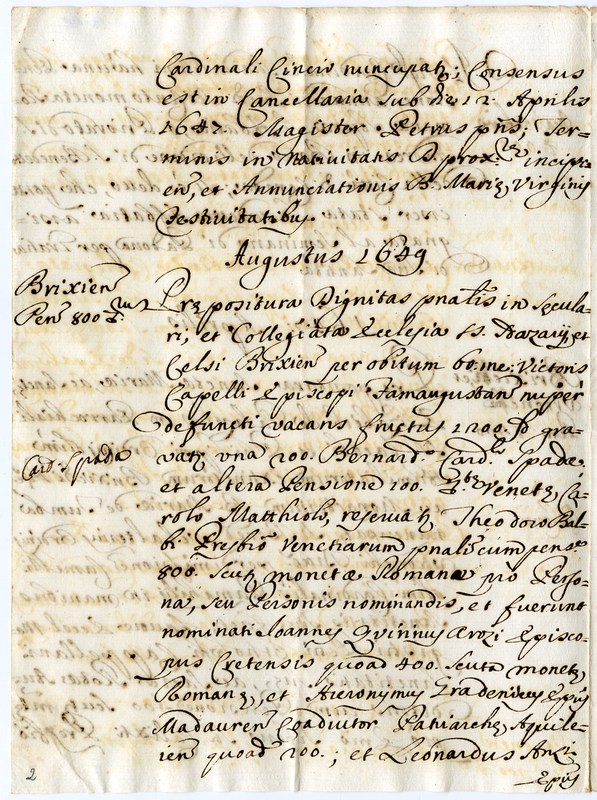 Cardinali Cincio nuncupatę; Consensus
est in Cancellaria sub die 12. Aprilis
1647. Magister Petrus pñs; Ter-
minis in Nativitatis D. prox. incipien
eñ, et Annunciationis B. Marię Virginis
festivitatibus.
Augustus 1649
Brixieñ
Peñ 800
Prępositura Dignitas pñalis in Sęcula-
ri, et Collegiata Ecclesia SS. Nazarij, et
Celsi Brixieñ per obitum bo: me: Victoris
Capelli Episcopi Famaugustañ nuper
defuncti vacans fructus 1200. gra-
Card. Spada
vatę vna 200. Bernard.o Card. Spadę
et altera Pensione 100. Venetę, Ca-
rolo Matthiolo, reservatę Theodoro Bal-
bi Presbro Venetiarum pñali cum pens.
800. scutę monetæ Romanæ pro Perso-
na, seu Personis nominandis, et fuerunt
nominati Ioannes Qvirinus Episco-
pus Cretensis quoad 400. scuta monetę
Romanę, et Hieronymus Gradenicus Epũs
Madaureñ Coadiutor Patriarchę Aquile-
ieñ quoad 200.; et Leonardus
Epũs
2